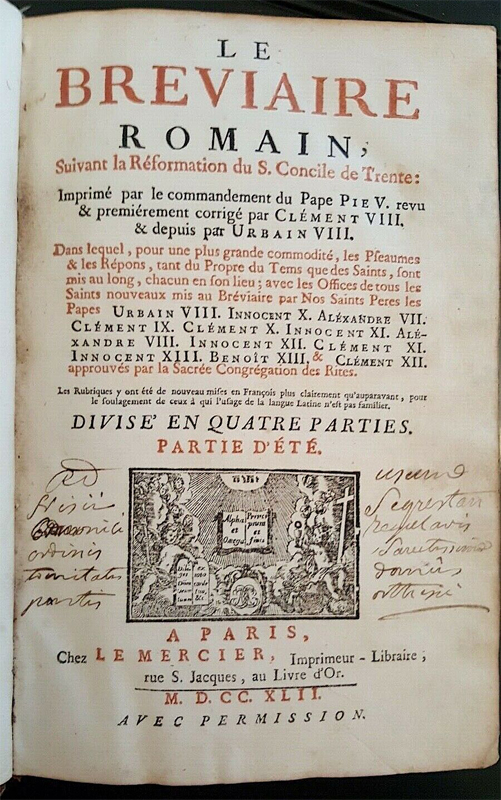 LE
BREVIAIRE
ROMAIN,
Suivant la Réformation du S. Concile de Trente:
Imprimé par le commandement du Pape PIE V. revu
& premiérement corrigé par CLÉMENT VIII.
& depuis par URBAIN VIII.
Dans lequel, pour une plus grande commodité, les Pſeaumes
& les Répons, tant du Propre du Tems que des Saints, ſont
mis au long, chacun en ſon lieu; avec les Offices de tous les
Saints nouveaux mis au Bréviaire par Nos Saints Peres les
Papes URBAIN VIII. INNOCENT X. ALÉXANDRE VII.
CLÉMENT IX. CLÉMENT X. INNOCENT XI. ALÉ-
XANDRE VIII. INNOCENT XII. CLÉMENT XI.
INNOCENT XIII. BENOÎT XIII. & CLÉMENT XII.
approuvés par la Sacrée Congrégation des Rites.
Les Rubriques y ont été de nouveau miſes en François plus clairement qu'auparavant, pour
le ſoulagement de ceux à qui l'uſage de la langue Latine n'eſt pas familier.
DIVISE' EN QUATRE PARTIES.
PARTIE D'ÉTÉ.
ad
ordinis
usum
Alpha
et
Omega
Princi
pium
et
finis
A PARIS,
Chez LE MERCIER, Imprimeur-Libraire,
rue S. Jacques, au Livre d'Or.
M. D. CC. XLII.
AVEC PERMISSION.